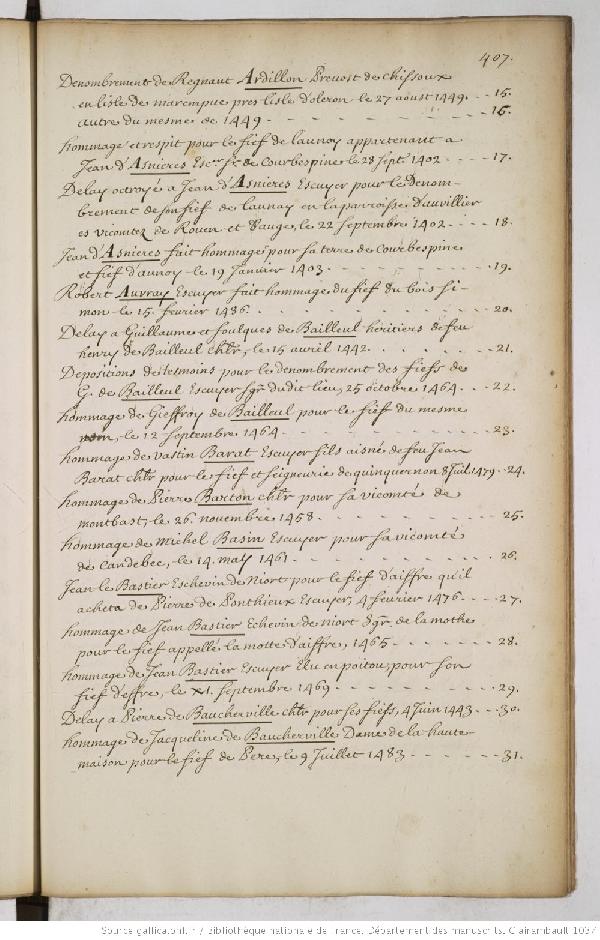 407.
Denombrement de Regnaut Ardillon Prevost de chissoux
en lisle de marempue pres lisle d'oleron le 27 aoust 1449. - - 15.
autre du mesme de 1449 - - - - - - - - 16.
hommage et respit pour le fief de launoy appartenant a
Jean d'Asnieres Escr. sr. de Courbespine le 28 sept. 1402 - - - - 17.
Delay octroyé a Jean d'Asnieres Escuyer pour le Denom-
brement de son fief de launay en la parroisse d'auvillier
es vicontez de Rouen et d'auge, le 22 septembre 1402 - - - 18.
Jean d'Asnieres fait hommage pour sa terre de Courbespine
et fief d'aunoy le 19 Janvier 1403 - - - - - - - - 19.
Robert Auvray Escuyer fait hommage du fief du bois si-
mon le 15. fevrier 1486 - - - - - - - - 20.
Delay a Guillaume et foulques de Bailleul heritiers de feu
henry de Bailleul chlr., le 15 avril 1442 - - - - - - - 21.
Depositions de tesmoins pour le denombrement des fiefs de
G. de Bailleul Escuyer sgr. du dit lieu, 25 octobre 1464 - - - 22.
hommage de Gieffroy de Bailleul pour le fief du mesme
nom, le 12 septembre 1464 - - - - - - - - 23.
hommage de vastin Barat Escuyer fils aisné de feu Jean
Barat chlr pour le fief et seigneurie de quinquernon 8 Juil. 1479 - 24.
hommage de Pierre Barton chlr pour sa vicomté de
montbast, le 26. novembre 1458 - - - - - - - 25.
hommage de Michel Basin Escuyer pour sa vicomté
de Caudebec, le 14. may 1461 - - - - - - - 26.
Jean le Bastier Eschevin de Niort pour le fief d'aiffre qu'il
acheta de Pierre de Ponthieux Escuyer, 4 fevrier 1476 - - - 27.
hommage de Jean Bastier Echevin de niort sgr. de la mothe
pour le fief appellé la motte d'aiffre, 1465 - - - - - 28.
hommage de Jean Bastier Escuyer Elu en poitou, pour son
fief d'effre, le XI. septembre 1469 - - - - - - - 29.
Delay a Pierre de Baucherville chlr pour ses fiefs, 4 Juin 1443 - - - 30.
hommage de Jacqueline de Baucherville Dame de la haute
maison pour le fief de Pere, le 9 Juillet 1483 - - - - - 31.
Source gallica.bnf.fr / Bibliothèque nationale de France. Département des manuscrits. Clairambault 1037